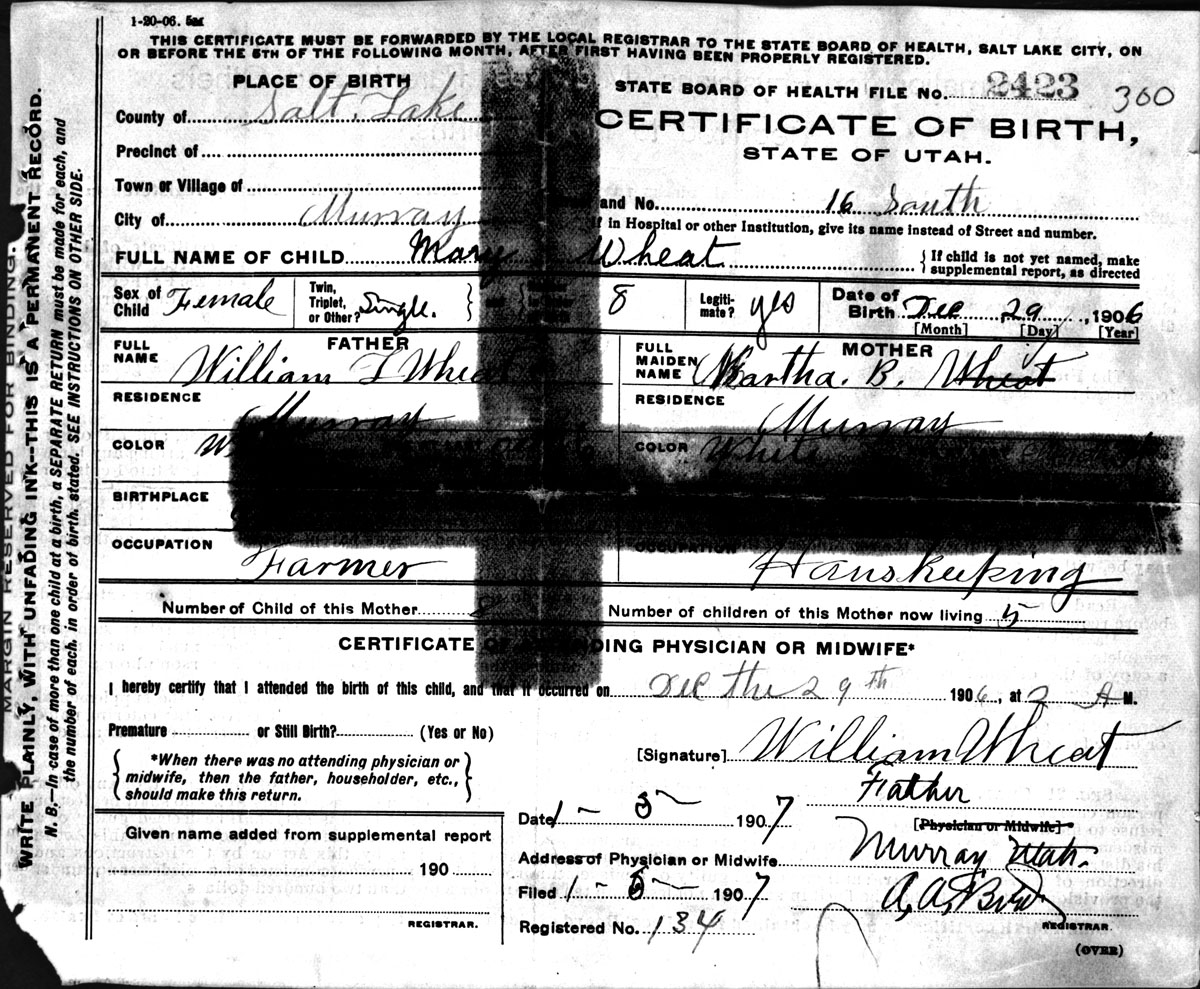 1-20-06. 5M
THIS CERTIFICATE MUST BE FORWARDED BY THE LOCAL REGISTRAR TO THE STATE BOARD OF HEALTH, SALT LAKE CITY, ON
OR BEFORE THE 5TH OF THE FOLLOWING MONTH, AFTER FIRST HAVING BEEN PROPERLY REGISTERED.
PLACE OF BIRTH
County of Salt Lake
Precinct of
Town or Village of
City of Murray
STATE BOARD OF HEALTH FILE No. 2423 360
CERTIFICATE OF BIRTH,
STATE OF UTAH.
and No. 16 South
If in Hospital or other Institution, give its name instead of Street and number.
FULL NAME OF CHILD Mary Wheat { If child is not yet named, make supplemental report, as directed
Sex of Child Female Twin, Triplet, or Other? Single. } 8 Legitimate? yes Date of Birth Dec 29, 1906
[Month] [Day] [Year]
FATHER
FULL NAME William T Wheat
RESIDENCE Murray
COLOR
BIRTHPLACE
OCCUPATION Farmer
MOTHER
FULL MAIDEN NAME Martha. B. Wheat
RESIDENCE Murray
COLOR White
OCCUPATION Houskeeping
Number of Child of this Mother 8 Number of children of this Mother now living 5
CERTIFICATE OF ATTENDING PHYSICIAN OR MIDWIFE*
I hereby certify that I attended the birth of this child, and that it occurred on Dec the 29th 1906, at 2 A M.
Premature or Still Birth? (Yes or No)
{ *When there was no attending physician or midwife, then the father, householder, etc., should make this return. }
[Signature] William Wheat
Father
[Physician or Midwife]
Date 1-5- 1907
Address of Physician or Midwife Murray Utah.
Filed 1-5- 1907 A. A.
REGISTRAR.
Registered No. 134
(OVER)
Given name added from supplemental report
190
REGISTRAR.
MARGIN RESERVED FOR BINDING.
WRITE PLAINLY, WITH UNFADING INK--THIS IS A PERMANENT RECORD.
N. B.—In case of more than one child at a birth, a SEPARATE RETURN must be made for each, and
the number of each, in order of birth, stated. SEE INSTRUCTIONS ON OTHER SIDE.